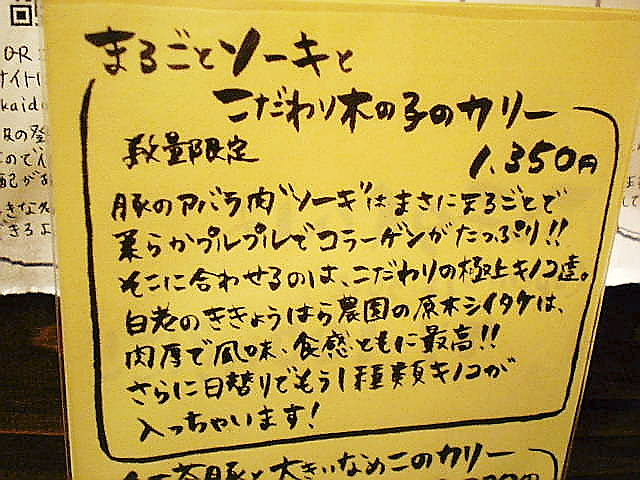 まるごとソーキと
こだわり木の子のカリー
数量限定
1,350円
豚のアバラ肉"ソーキ"はまさにまるごとで
柔らかプルプルでコラーゲンがたっぷり!!
そこに合わせるのは、こだわりの極上キノコ達。
白老のききょうはら農園の原木シイタケは、
肉厚で風味、食感ともに最高!!
さらに日替りでもう1種類キノコが
入っちゃいます!
豚と大きいなめこのカリー